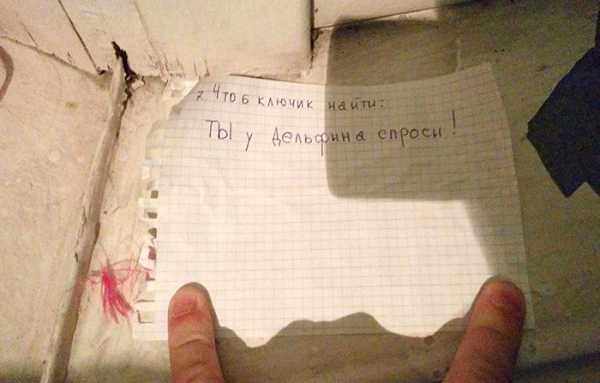 7. Чтоб ключик найти:
Ты у дельфина спроси!